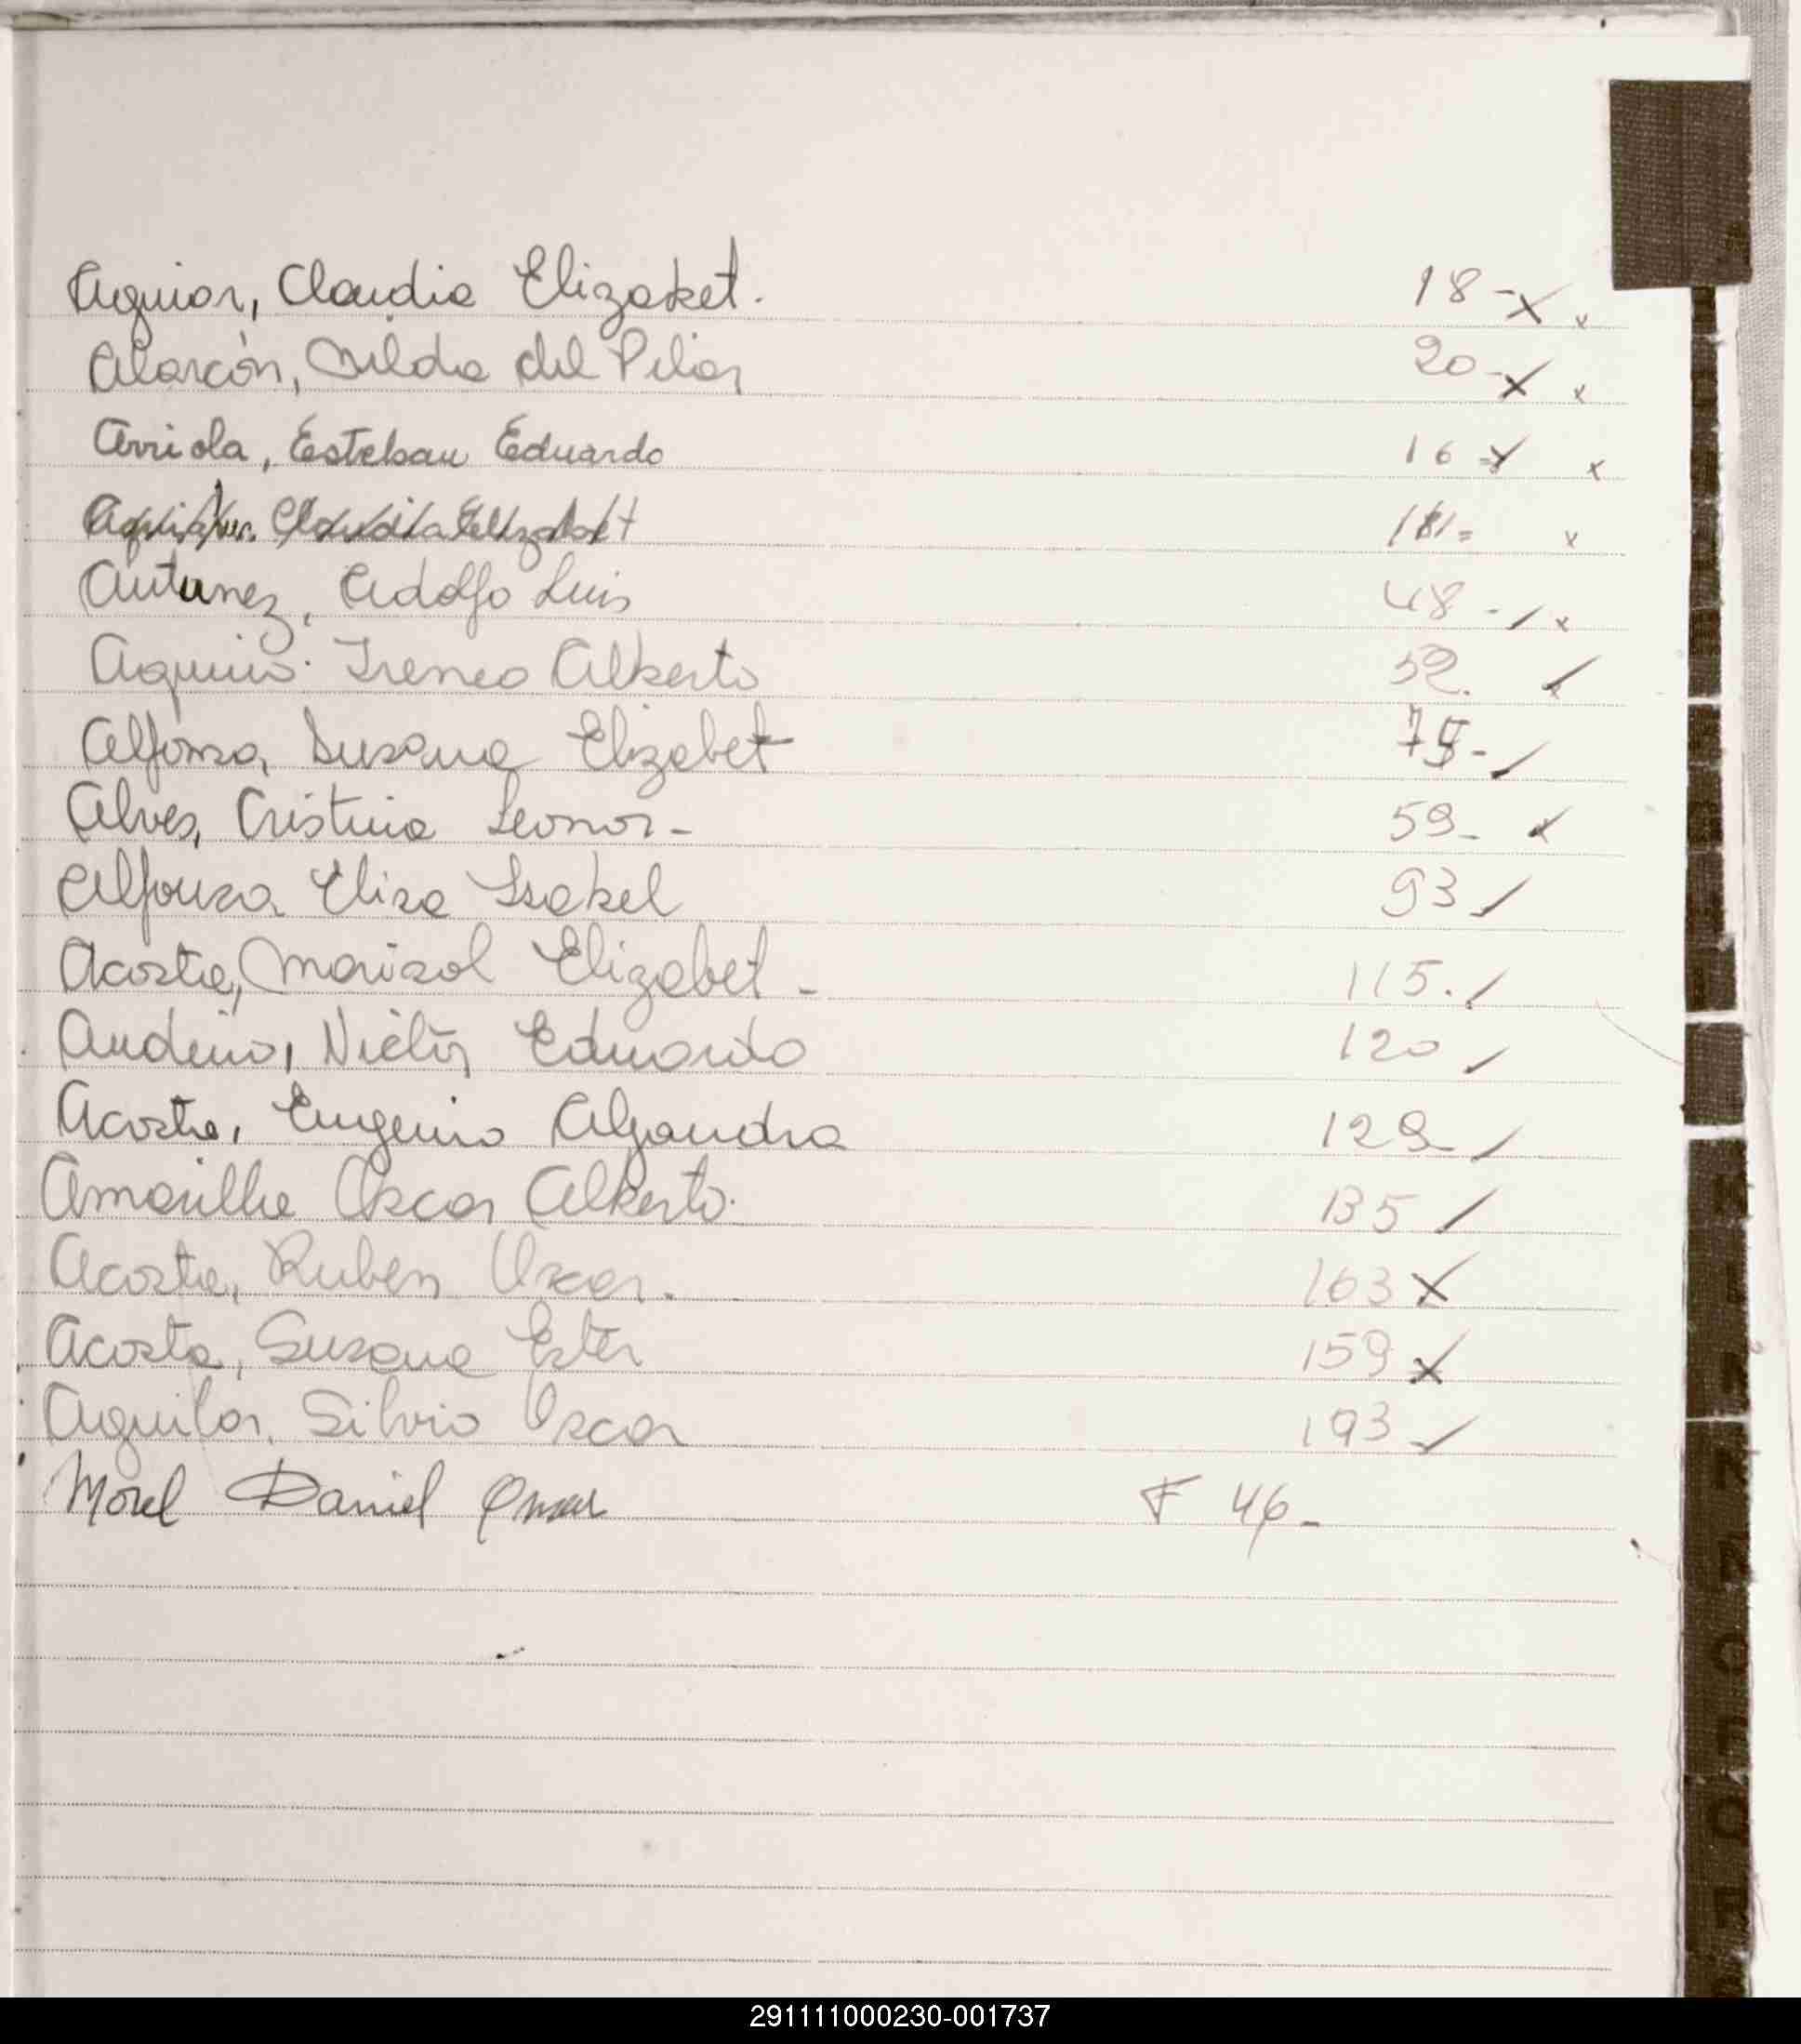 Aguiar, Claudia Elizabet. 18 - x x
Alarcón, Nilda del Pilar 20 - x x
Arriola, Esteban Eduardo 16 = x x
Aguiar Claudia Elizabet 18 = x
Antunez, Adolfo Luis 48 - / x
Aquino. Ireneo Alberto 52. /
Alfonso, Susana Elizabet 75 - /
Alves, Cristina Leonor - 59 - x
Alfonso Elisa Isabel 93 /
Acosta, Marisol Elizabet - 115. /
Andino, Victor Eduardo 120 /
Acosta, Eugenia Alejandra 129 - /
Amarilla Oscar Alberto. 135 /
Acosta, Ruben Oscar. 163 x
Acosta, Susana Ester 159 x
Aguilar, Silvio Oscar 193 /
Morel Daniel Omar F 46 -
291111000230-001737